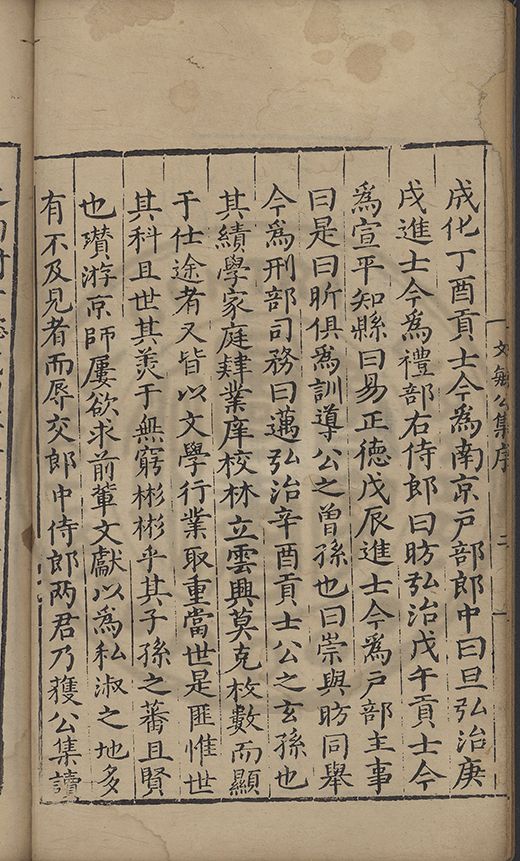 文勉公集序 二
成化丁酉貢士今為南京戸部郎中曰旦弘治庚
戌進士今為禮部右侍郎曰昉弘治戊午貢士今
為宣平知縣曰易正德戊辰進士今為戸部主事
曰是曰昕俱為訓導公之曾孫也曰崇與昉同舉
今為刑部司務曰邁弘治辛酉貢士公之玄孫也
其績學家庭肄業庠校林立雲興莫克枚數而顯
于仕途者又皆以文學行業取重當世是匪惟世
其科且世其羙于無窮彬彬乎其子孫之蕃且賢
也瓚游京師屢欲求前輩文獻以為私淑之地多
有不及見者而辱交郎中侍郎两君乃獲公集讀